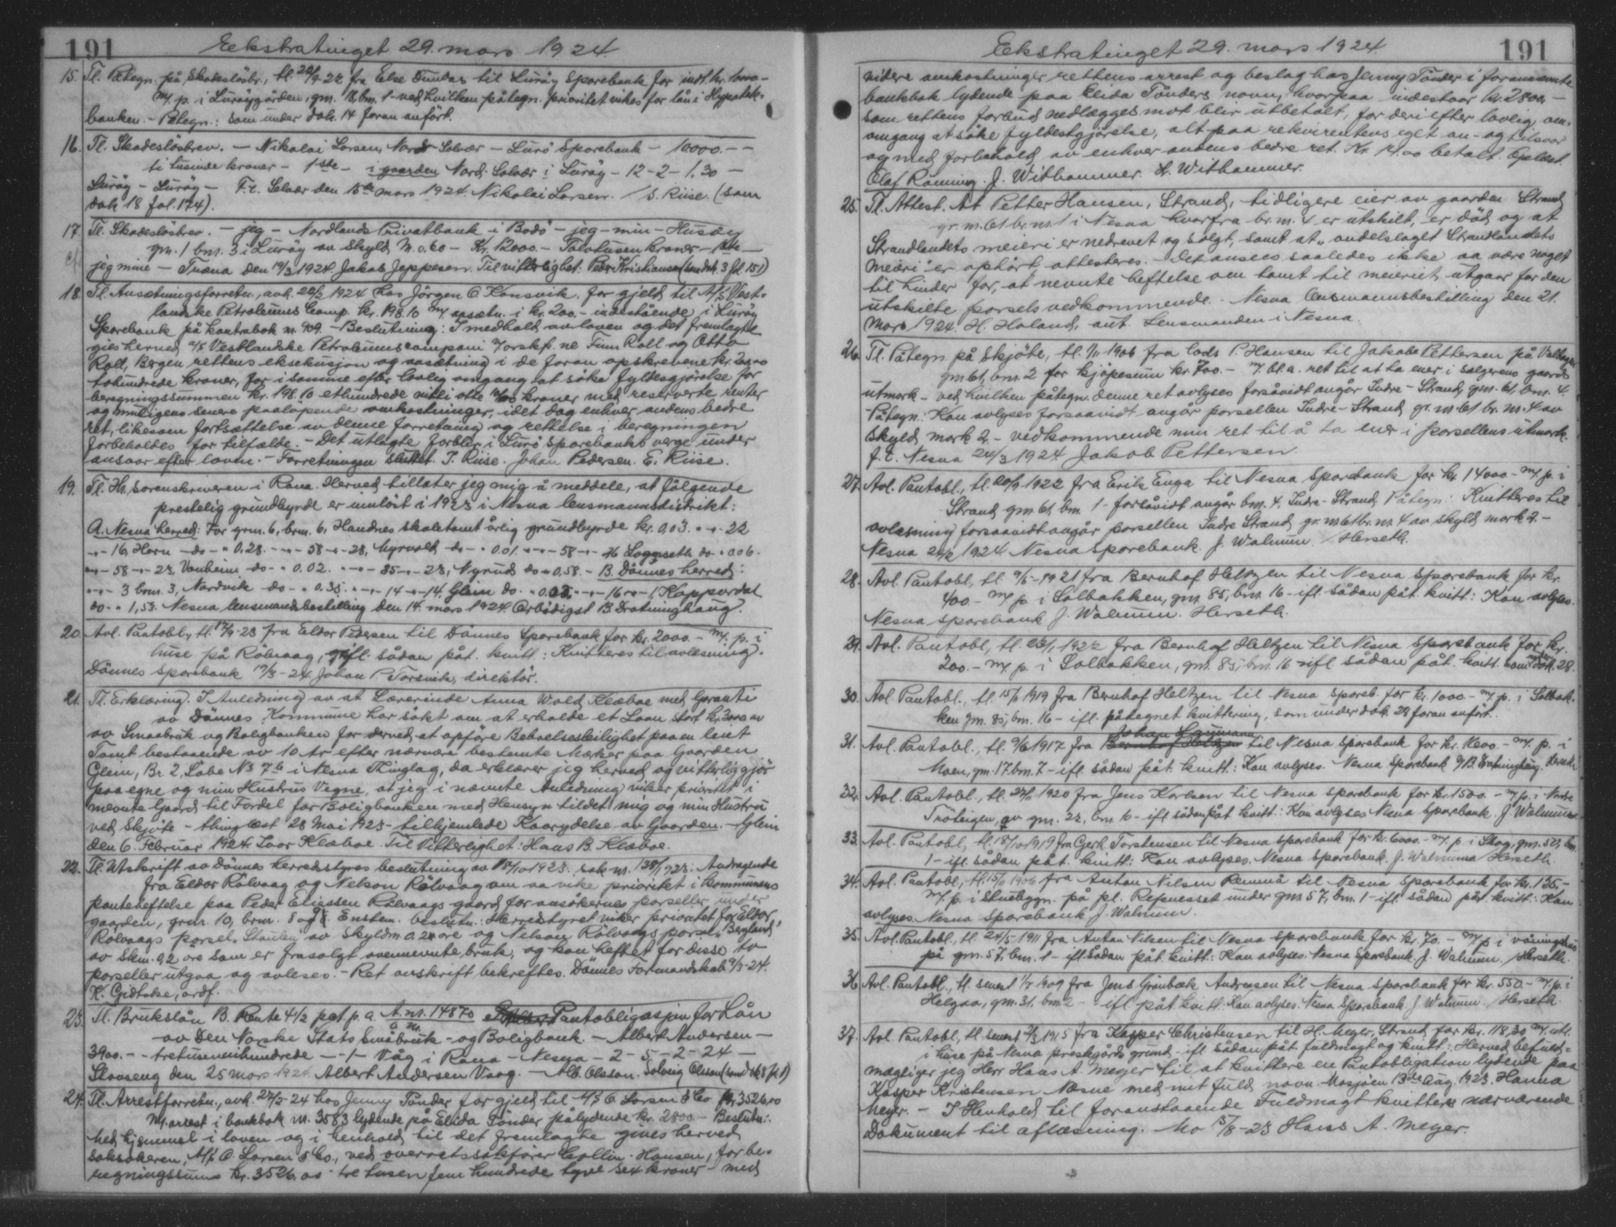 191 Ekstratinget 29. mars 1924
15. Tl. Påtegn. på Skadeslösbr., tl. 22/9-22 fra Else Dundas til Luröy Sparebank for indt. kr. 1000-
m/ p. i Luröygården, gm. 18, bm. 1 - ved hvilken påtegn. prioritet vikes for lån i Hypotek-
banken. - Påtegn.: som under dok. 14 foran anfört.
16. Tl. Skadeslösbrev. - Nikolai Larsen, Nord-Solvær - Lurö Sparebank - 10000.- -
ti tusinde kroner - 1ste - i gaarden Nord-Solvær i Luröy - 12-2 - 1,30 -
Luröy - Luröy - Fr. Selvær den 15de mars 1924. Nikolai Larsen. / S. Riise. (som
dok 18 fol. 174).
17. Tl. Skadeslösbrev. - jeg - Nordlands Privatbank i Bodö - jeg - min - Husöy
gm. 1 bm. 3 i Luröy av skyld M 0.60 - Kr. 12000.- Tolvtusen kroner - 1ste -
jeg mine - Træna den 10/3 1924. Jakob Jeppesen. Til vitterlighet: Peder Kristiansen (som dok 3 fol 151)
18. Tl. Ansætningsforretn., avh. 22/2 1924 hos Jörgen C Konsvik, for gjeld til A/S Vest-
landske Petroleums Comp. kr. 198.10 m/ apsætn. i kr. 200,- indestående i Luröy
Sparebank på kontrabok nr. 909. - Beslutning: I medhold av loven og det fremlagte
gies herved A/S Vestlandske Petroleumscompani v/orskf. ne Finn Roll og Otto
Roll, Bergen rettens eksekusjon og apsætning i de foran opskrevne kr. 200.-
tohundrede kroner, for i samme efter lovlig omgang at söke fyldestgjörelse for
beregningssummen kr. 198.10 ethundrede nitti otte 10/100 kroner med reserverte renter
og muligens senere paalöpende omkostninger, idet dog enhver andens bedre
ret, likesom fortsættelse av denne forretning og rettelse i beregningen
forbeholdes for tilfælde. - Det utlagte forblir i Lurö Sparebanks verge under
ansvar efter loven. - Forretningen sluttet. I. Riise. Johan Pedersen. E. Riise.
19. Tl. Hr. sorenskriveren i Rana. Herved tillater jeg mig å meddele, at fölgende
prestelig grundbyrde er innlöst i 1923 i Nesna lensmannsdistrikt:
A. Nesna herred: For grm. 6, brm. 6, Handnes skoletomt årlig grundbyrde kr. 0,03. -"- 22
-"- 16, Horn -do- 0.28. -"- 58 -"- 28, Myrvold do- 0.01. -"- 58 -"- 46 Loggseth do- 0.06.
-"- 58 -"- 23 Vonheim do- 0.02. -"- 85 -"- 23, Nyrud do- 0,58. - B. Dönnes herred:
-"- 3 brm. 3, Nordvik do- 0.35. -"- 14 -"- 14 Glein do- 0.02. -"- 16 -"- 1 Koppardal
do- 1,53. Nesna lensmandsbestilling den 14. mars 1924 Ærbödigst B. Drotninghaug.
20. Avl. Pantobl., tl. 17/9-23 fra Eldor Pedersen til Dönnes Sparebank for kr. 2000.- m/ p. i
huse på Rölvaag, ifl. sådan påt. kvitt: Kvitteres til avlesning.
Dönnes sparebank 19/3-24, Johan P. Torsvik, direktör.
21. Tl. Erklæring. I Anledning av at Lærerinde Anna Wold Klæboe med Garanti
av Dönnes Kommune har sökt om at erholde et Laan stort kr. 2000 av
av Smaabruk og Boligbanken for derved at opföre Beboelsesleilighet paa en leiet
Tomt bestaaende av 10 Ar efter nærmere bestemte Merker paa Gaarden
Glein, Br 2, Löbe No 76 i Nesna Thinglag, da erklærer jeg herved og vitterliggjör
paa egne og min Hustrus Vegne, at jeg i nævnte Anledning viker prioritet i
nævnte Gaard til Fordel for Boligbanken med Hensyn til det mig og min Hustru
ved Skjöte - thinglæst 28 Mai 1923 - tilhjemlede Kaarydelse av Gaarden. - Glein
den 6. Februar 1924 Laor Klæboe. Til Vitterlighet: Hans B. Klæboe.
22. Tl. Utskrift av Dönnes herredsstyres beslutning av 18/10 1923. sak nr. 138/1923: Andragende
fra Eldor Rölvaag og Nelson Rölvaag om aa vike prioritet i kommunens
panteheftelse paa Peder Eliassen Rölvaags gaard for ansökernes parseller under
gaarden, grm. 10, brm. 8 og 8. Enstem. beslutn: Herredstyret viker prioritet for Eldor
Rölvaags parsel "Staulen" av skyldm. 0.20 öre og Nelson Rölvaags parsel "Bergland"
av Skm. 0.2 öre som er frasolgt ovennævnte bruk, og kan heftet for disse to
parseller utgaa og avleses. - Ret avskrift bekreftes. Dönnes Formandskab 9/3-24.
K. Gjelbakse, ordf.
23. Tl. Brukslån B. Rente 4 1/2 pct. p. a. A nr. 14870 Pantobligasjon for Lån
av Den Norske Stats Småbruk- og Boligbank. - Albert Andersen -
3900.- - tretusennihundrede - 1 - Våg i Rana - Nesna - 2 - 5 - 2 - 24 -
Stauseng den 25 Mars 1924. Albert Andersen Vaag. - Alb. Olsson. Solveig Olsson (som dok 8 fol 1)
24. Tl. Arrestforretn., avh. 24/3-24 hos Jenny Tönder for gjeld til A/S O. Larsen & Co kr. 3526.00
m/ arrest i bankbok nr. 3583 lydende på Elida Tönder pålydende kr. 2800.- Beslutn.:
Med hjemmel i loven og i henhold til det fremlagte gives herved
saksökeren, A/S O. Larsen & Co., ved overretssakförer Collin-Hansen, for be-
regningssum kr. 3526.00 tre tusen fem hundrede tyve sex kroner med
Ekstratinget 29. mars 1924 191
videre omkostninger rettens arrest og beslag hos Jenny Tönder i foranævnte
bankbok lydende paa Elida Tönders navn, hvorpaa indestaar kr. 2800.-
som rettens forbud nedlægges mot blir utbetalt, for deri efter lovlig om-
omgang at söke fyldestgjörelse, alt paa rekvirentens eget an- og tilsvar
og med forbehold av enhver andens bedre ret. Kr. 14.00 betalt. Oplæst.
Olaf Rönning. J. Withammer. H. Withammer.
25. Tl. Attest. At Petter Hansen, Strand, tidligere eier av gaarden Strand
gr. nr. 61 br. nr. 1 i Nesna hvorfra br. nr. 4 er utskilt, er död, og at
Strandlandets meieri er nedrevet og solgt, samt at "andelslaget Strandlandets
meieri" er ophört attesteres. - Det ansees saaledes ikke aa være noget
til hinder for, at nevnte heftelse om tomt til meieriet utgaar for den
utskilte parsels vedkommende. - Nesna lensmannsbestilling den 21.
mars 1924. H. Haland, aut. Lensmanden i Nesna.
26. Tl. Påtegn. på skjöte, tl. 1/11 1906 fra Lods P. Hansen til Jakob Pettersen på
gm. 61, bnr. 2 for kjöpesum kr. 700.- m/ bl. a. ret til at ta ener i sælgerens gaards
utmark - ved hvilken påtegn. denne ret avlyses forsåvidt angår Indre-Strand, gm. 61, bnr. 4.
Påtegn. Kan avlyses forsaavidt angår parsellen Indre-Strand gr. nr. 61 br. nr. 4 av
skyld mark 2 - vedkommende min ret til å ta ener i parsellens utmark.
f. t. Nesna 24/3 1924 Jakob Pettersen
27. Avl. Pantobl., tl. 20/9 1922 fra Erik Enga til Nesna Sparebank for kr. 14000- m/ p. i
Strand gm. 61, bm. 1 forsåvidt angår bm. 4, Indre-Strand. Påtegn: Kvitteres til
avlesning forsaavidt angår parsellen Indre Strand gr. nr. 61 br. nr. 4 av skyld mark 2 -
Nesna 24/3 1924 Nesna Sparebank. J. Walnum. / Herseth.
28. Avl. Pantobl., tl. 9/5-1921 fra Bernhof Heltzen til Nesna Sparebank for kr.
400- m/ p. i Solbakken, gm. 85, bm. 16 - ifl. sådan påt. kvitt: Kan avlyses.
Nesna Sparebank J. Walnum. Herseth.
29. Avl. Pantobl., tl. 28/1 1922 fra Bernhof Heltzen til Nesna Sparebank for kr.
200.- m/ p. i Solbakken, gm. 85, bm. 16 - ifl. sådan påt. kvitt. som under dok. 28.
30. Avl. Pantobl., tl. 15/11 1919 fra Bernhof Heltzen til Nesna Spareb. for kr. 1000- m/ p. i Solbak-
ken gm. 85, bm. 16 - ifl. påtegnet kvittering, som under dok. 28 foran anfört.
31. Avl. Pantobl., tl. 9/6 1917 fra Johan Laumann til Nesna Sparebank for kr. 1600.- m/ p. i
Moen, gm. 17, bm. 7 - ifl. sådan påt. kvitt: Kan avlyses. Nesna Sparebank B. Drotninghaug. Herseth
32. Avl. Pantobl., tl. 24/11 1920 fra Jens Karlsen til Nesna Sparebank for kr. 1500.- m/ p. i Nordre
Trölvigen, av gm. 22, bm. 16 - ifl. sådan påt. kvitt: Kan avlyses Nesna Sparebank. J. Walnum.
33. Avl. Pantobl., tl. 18/10 1919 fra Gerh. Torstensen til Nesna Sparebank for kr. 6000.- m/ p. i Skog, gm. 52, bm.
1 - ifl. sådan påt. kvitt: Kan avlyses. Nesna Sparebank. J. Walnum. / Herseth.
34. Avl. Pantobl., tl. 15/9 1906 fra Anton Nilsen Ramnå til Nesna Sparebank for kr. 135.-
m/ p. i husbyggn. på pl. Repneset under gm. 57, bm. 1 - ifl. sådan påt. kvitt: Kan
avlyses Nesna Sparebank J. Walnum.
35. Avl. Pantobl., tl. 24/5 1911 fra Anton Nilsen til Nesna Sparebank for kr. 70.- m/ p. i våningshus
på gm. 57, bm. 1 - ifl sådan påt. kvitt: Kan avlyses. Nesna Sparebank J. Walnum. / Herseth.
36. Avl. Pantobl., tl. senest 1/7 1909 fra Jens Grönbæk Andreasen til Nesna Sparebank for kr. 550.- m/ p. i
Helgaa, gm. 31, bm. 2 - ifl. påt. kvitt. Kan avlyses. Nesna Sparebank J. Walnum. / Herseth.
37. Avl. Pantobl., tl. senest 2/3 1915 fra Kasper Christensen til H. Meyer, Strand for kr. 118,30 m/ utl.
i huse på Nesna prestgårds grund - ifl. sådan påt. fuldmagt og kvitt: Herved befuld-
mægtiger jeg Herr Hans A. Meyer til at kvittere en Pantobligation lydende paa
Kasper Kristensen Nesne med mit fuld navn. Mosjöen 13de Aug. 1923. Hanna
Meyer. - I Henhold til foranstaaende Fuldmagt kvitteres nærværende
Dokument til aflæsning. Mo 15/8-23 Hans A. Meyer.